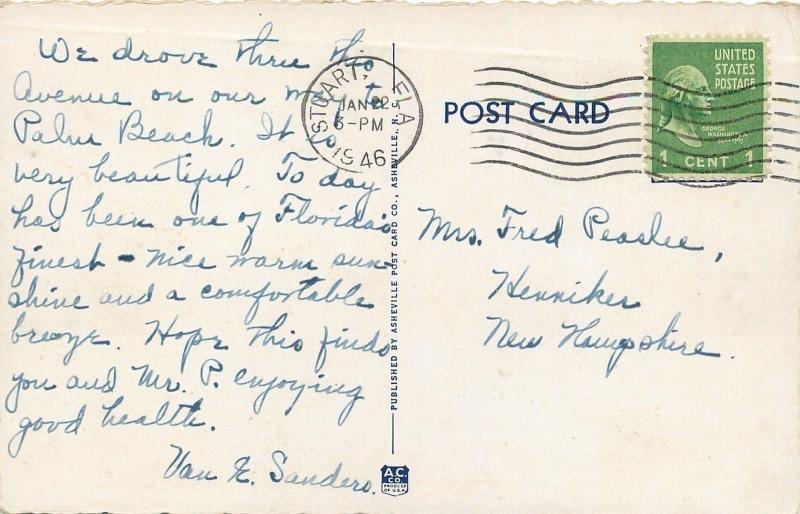 We drove thru this
Avenue on our way to
Palm Beach. It is
very beautiful. To day
has been one of Florida's
finest - nice warm sun-
shine and a comfortable
breeze. Hope this finds
you and Mr. P. enjoying
good health.
Van E. Sanders.
STUART, FLA
JAN 22
5-PM
1946
PUBLISHED BY ASHEVILLE POST CARD CO., ASHEVILLE, N.
A.C.
CO.
PRODUCT
OF U.S.A.
POST CARD
UNITED
STATES
POSTAGE
GEORGE
WASHINGTON
1 CENT 1
Mrs. Fred Peaslee,
Henniker
New Hampshire.